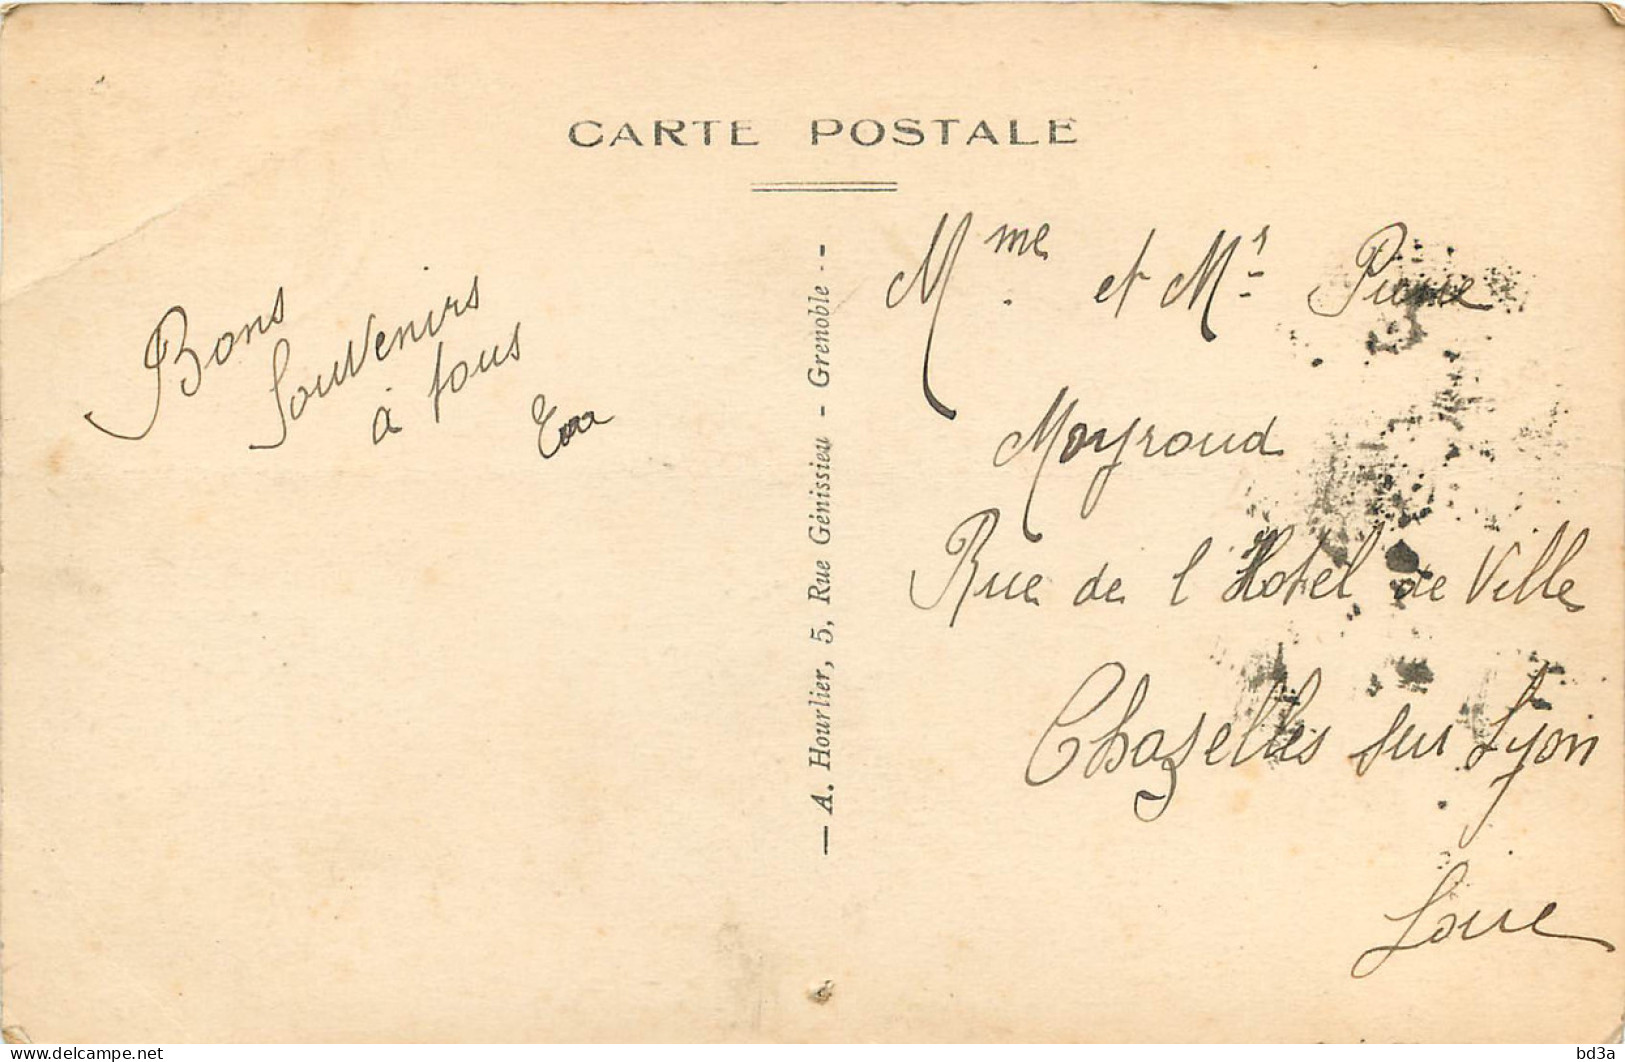 CARTE POSTALE
Bons
Souvenirs
à tous
— A. Hourlier, 5, Rue Génissieu - Grenoble --
Mme. et Mr Pierre
Moyroud
Rue de l Hotel de Ville
Chazelles sur Lyon
Loire
www.delcampe.net
bd3a